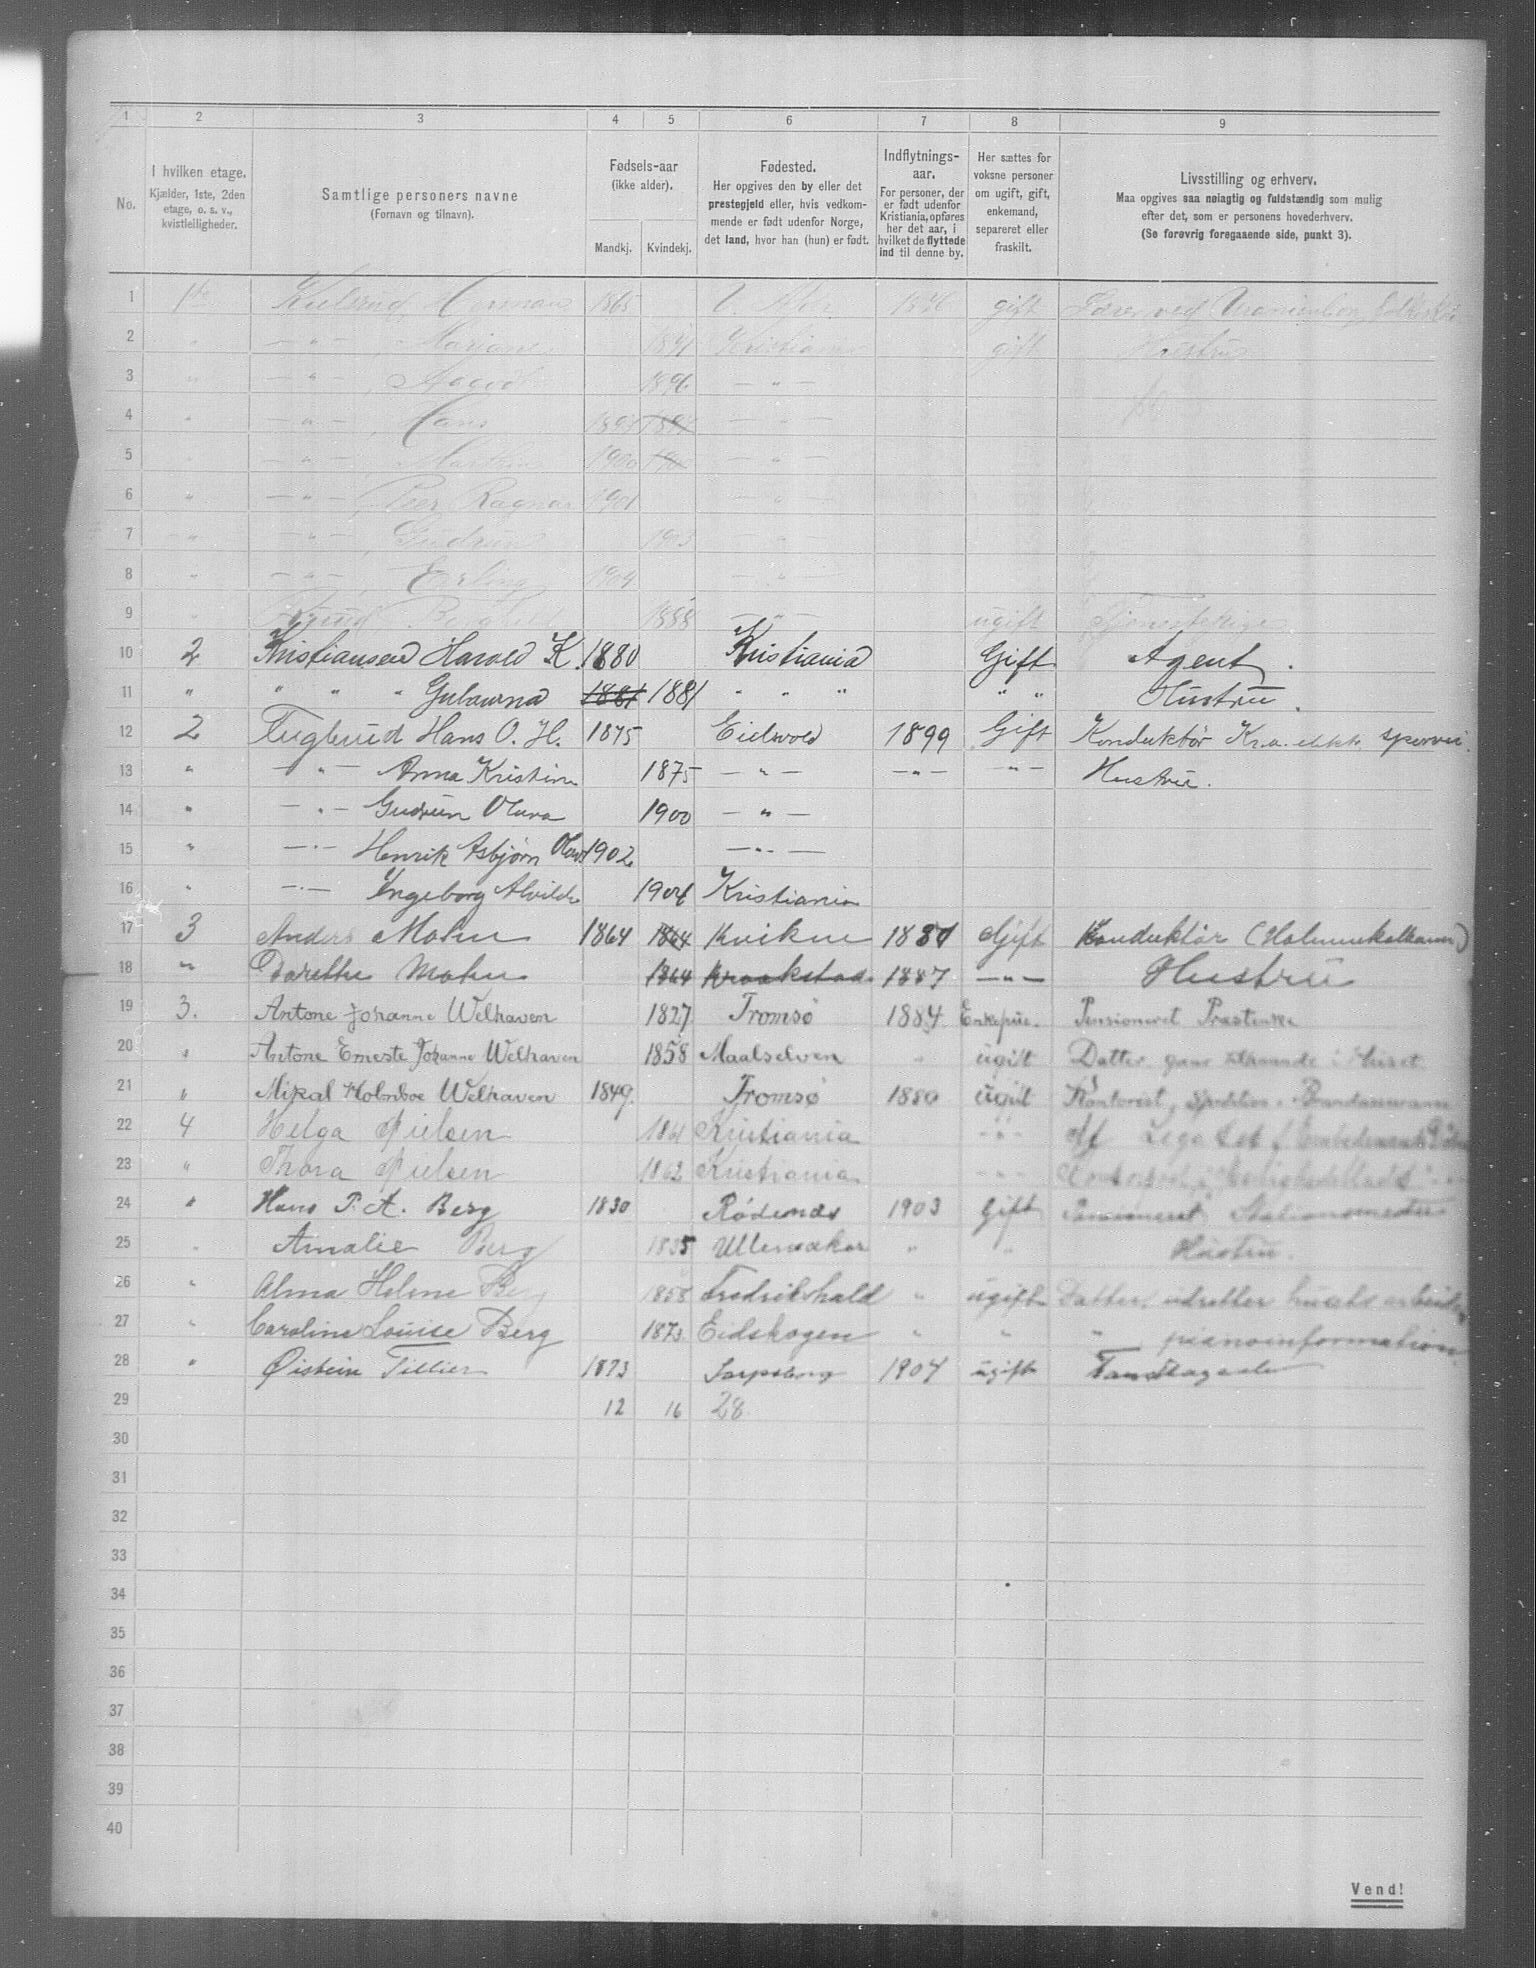 1 2 3 4 5 6 7 8 9
No.
I hvilken etage.
Kjælder, 1ste, 2den
etage, o. s. v.,
kvistleiligheder.
Samtlige personers navne
(Fornavn og tilnavn).
Fødsels-aar
(ikke alder).
Mandkj. Kvindekj.
Fødested.
Her opgives den by eller det
prestegjeld eller, hvis vedkom-
mende er født udenfor Norge,
det land, hvor han (hun) er født.
Indflytnings-
aar.
For personer, der
er født udenfor
Kristiania, opføres
her det aar, i
hvilket de flyttede
ind til denne by.
Her sættes for
voksne personer
om ugift, gift,
enkemand,
separeret eller
fraskilt.
Livsstilling og erhverv.
Maa opgives saa nøiagtig og fuldstændig som mulig
efter det, som er personens hovederhverv.
(Se forøvrig foregaaende side, punkt 3).
1 1ste Herman 1865 gift ved
2 " — " — Kristiania gift Hustru
3 " — " — 1896 — " —
4 " — " — Hans — " —
5 " — " — 1900 — " —
6 " — " — Peer Ragnar 1901 — " —
7 " — " — Gudrun 1903 — " —
8 " — " — Erling 1904 — " —
9 " 1888 — " — ugift Tjenestepige
10 2 Kristiansen Harold K. 1880 Kristiania Gift Agent.
11 " " " " 1881 1881 " " " " " Hustru.
12 2 Fuglerud Hans O. H. 1875 Eidsvold 1899 Gift Konduktør Kr.a. elektr. sporvei.
13 " — " — Anna Kristine 1875 — " — — " — — " — Hustru.
14 " — " — Gudrun Olava 1900 — " —
15 " — " — Henrik Asbjørn 1902 — " —
16 " — " — Ingeborg Alvilde 1904 Kristiania
17 3 Anders Mohn 1864 1864 Kvikne Gift Konduktør
18 " Dorethe Mohn 1864 Kraakstad 1887 — " — Hustru
19 3. Antone Johanne Welhaven 1827 Tromsø 1884 Enkefrue. Pensioneret Prestenke
20 " Antone Erneste Johanne Welhaven 1858 Maalselven " ugift Datter i Huset
21 " Mikal Holmboe Welhaven 1849. Tromsø 1880 ugift Kontorist,
22 4 Helga Nielsen 1861 Kristiania " Legatet
23 " Thora Nielsen 1862 Kristiania "
24 " Hans P. A. Berg 1830 Rødenæs 1903 Gift Pensioneret Stationsmester
25 " Amalie Berg 1835 Ullensaker " " Hustru.
26 " Alma Helene Berg 1858 Fredrikshald " ugift Datter, udretter husets arbeide
27 " Caroline Louise Berg 1873 Eidskogen " " " pianoinformation
28 " Øistein Tillier 1873 Sarpsborg 1904 ugift Tandlæge
29 12 16 28
30
31
32
33
34
35
36
37
38
39
40
Vend!